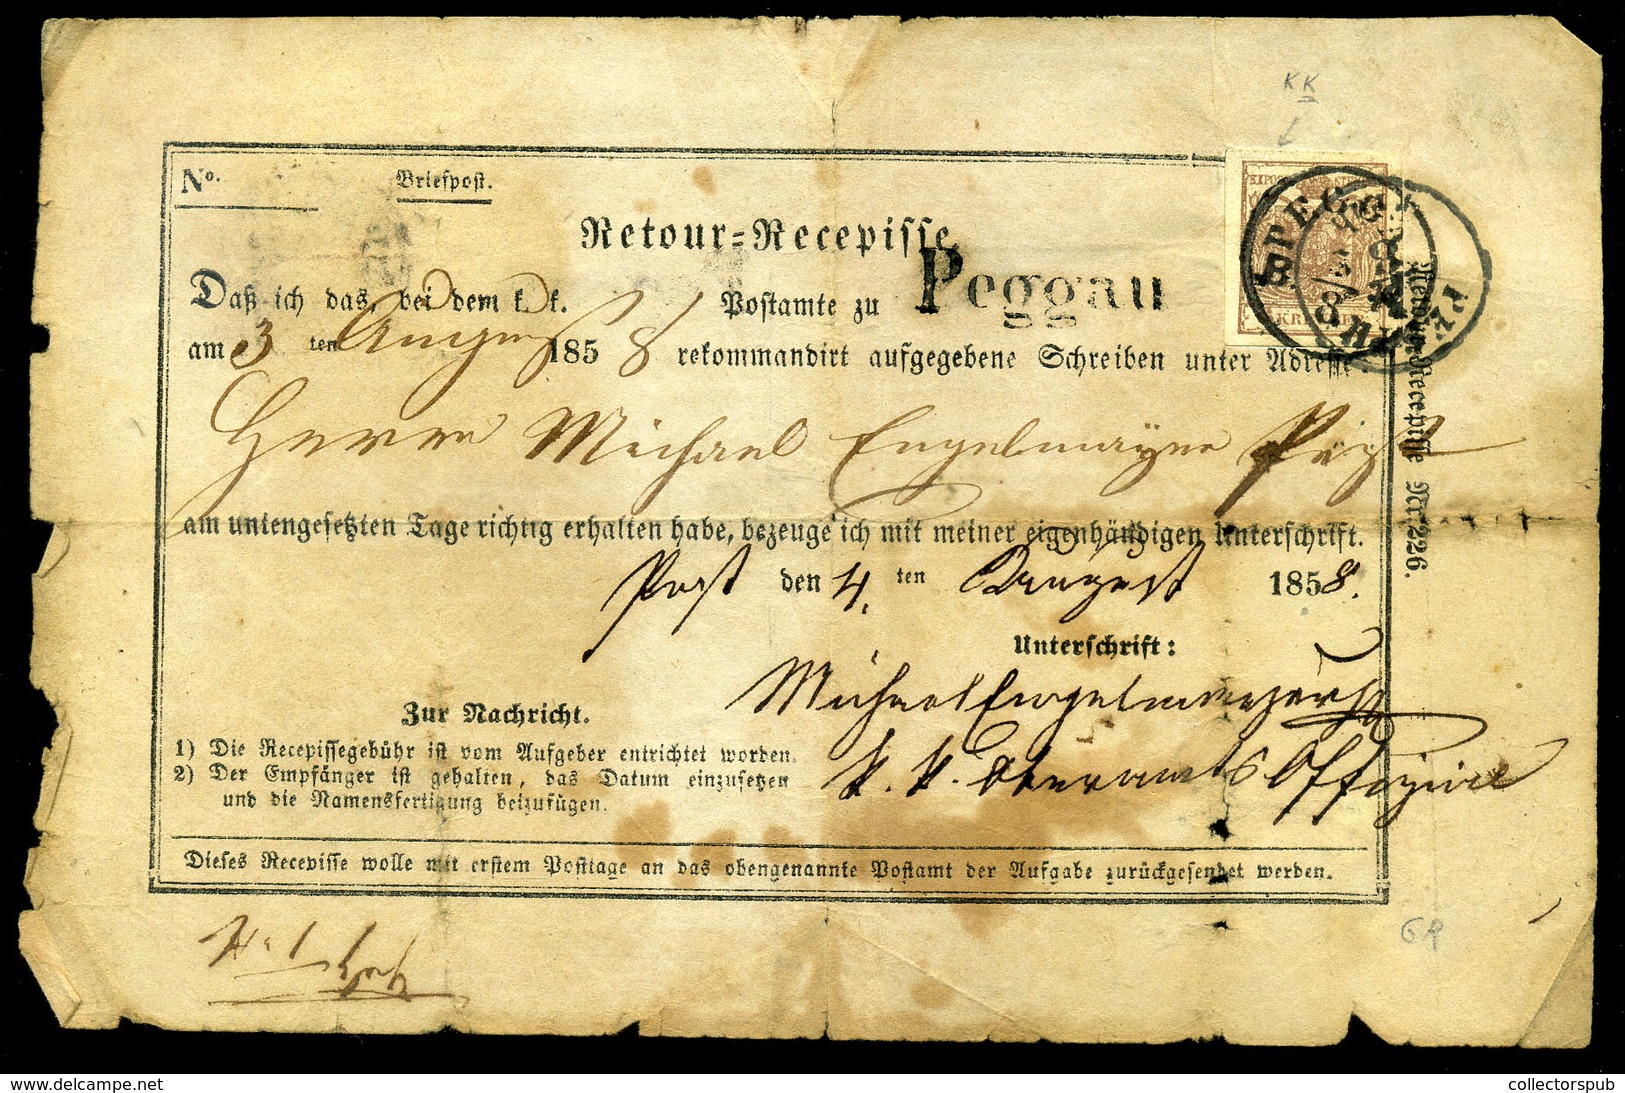 KK
No.
Briefpost.
Retour=Recepisse
Daß ich das, bei dem k. k. Postamte zu Peggau
am 3 ten August 1858 rekommandirt aufgegebene Schreiben unter Adresse
Herrn Michael Engelmayer
am untengesetzten Tage richtig erhalten habe, bezeuge ich mit meiner eigenhändigen Unterschrift.
Pest den 4. ten August 1858.
Unterschrift:
Michael Engelmayer
k. k. Oberamts Offizial
Zur Nachricht.
1) Die Recepissegebühr ist vom Aufgeber entrichtet worden.
2) Der Empfänger ist gehalten, das Datum einzusetzen
und die Namensfertigung beizufügen.
Dieses Recepisse wolle mit erstem Posttage an das obengenannte Postamt der Aufgabe zurückgesendet werden.
Retour-Recepisse Nr. 226.
GR
www.delcampe.net
collectorspub